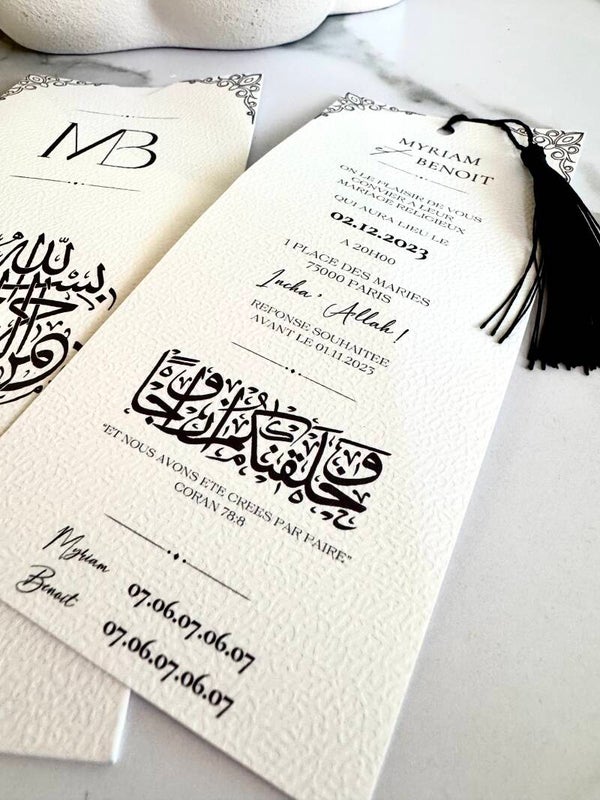 MB
بسم الله الرحمن الرحيم
MYRIAM
et BENOIT
ON LE PLAISIR DE VOUS
CONVIER A LEUR
MARIAGE RELIGIEUX
QUI AURA LIEU LE
02.12.2023
A 20H00
1 PLACE DES MARIES
75000 PARIS
Incha' Allah !
REPONSE SOUHAITEE
AVANT LE 01.11.2023
وَخَلَقْنَاكُمْ أَزْوَاجًا
"ET NOUS AVONS ETE CREES PAR PAIRE"
CORAN 78:8
Myriam 07.06.07.06.07
Benoit 07.06.07.06.07